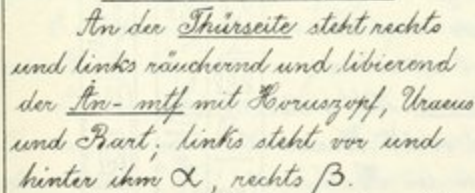 An der Thürseite steht rechts
und links räuchernd und libierend
der Än-mtf mit Horuszopf, Uraeus
und Bart; links steht vor und
hinter ihm α, rechts β.